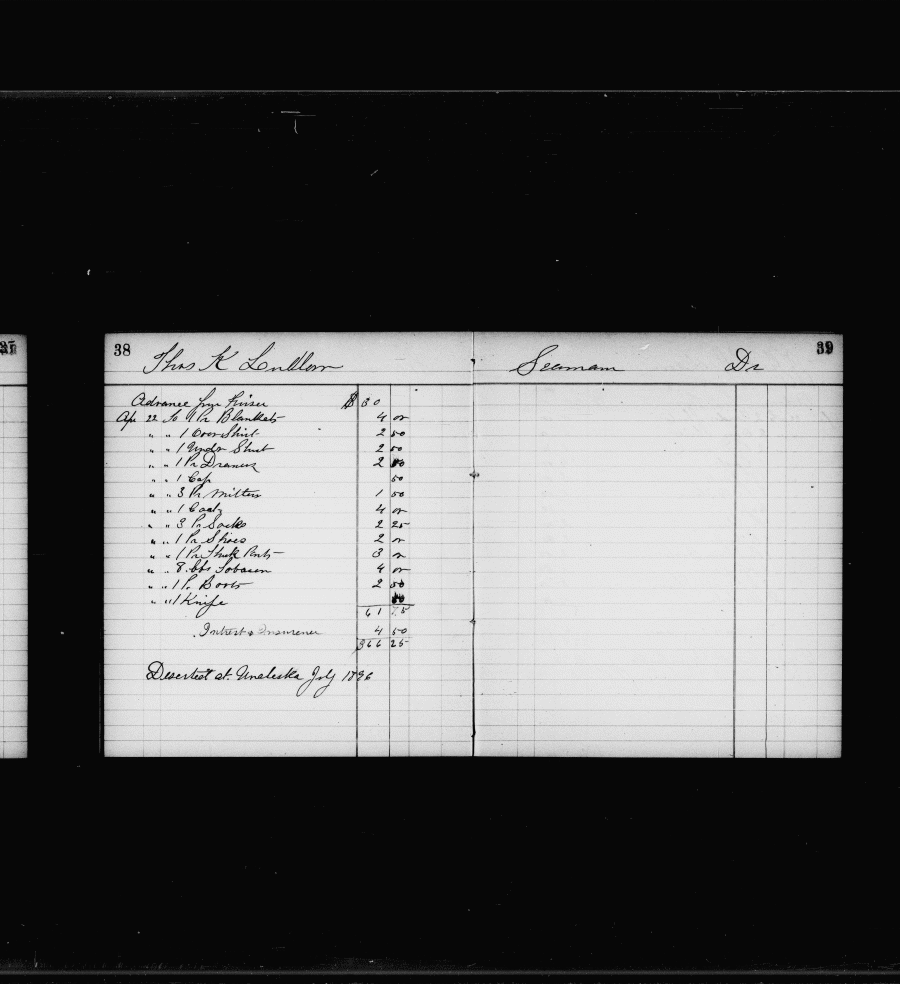 37
38 Thos K Ludlow Seamam Dr 39
Advance fm Kiser $ 30
Apr 22 To 1 Pr Blankets 4 00
" " 1 Over Shirt 2 50
" " 1 Under Shirt 2 50
" " 1 Pr Drawers 2 50
" " 1 Cap 50
" " 3 Pr Mittens 1 50
" " 1 Coat 4 00
" " 3 Pr Socks 2 25
" " 1 Pr Shoes 2 00
" " 1 Pr Thick Pants 3 00
" " 8 lbs Tobacco 4 00
" " 1 Pr Boots 2 50
" " 1 Knife 50
61 75
Intrest & Insurence 4 50
$66 25
Deserted at Unaleska July 1896